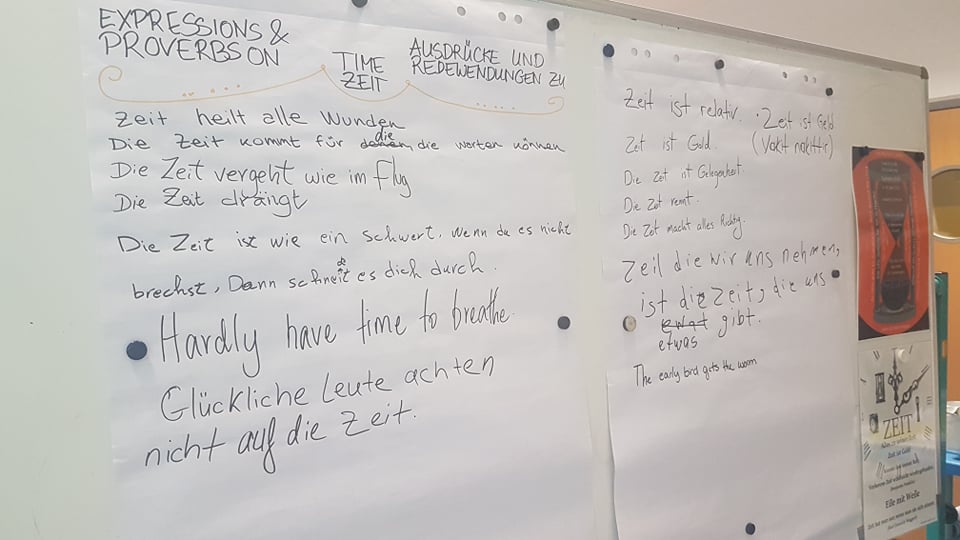 EXPRESSIONS &
PROVERBS ON
TIME
ZEIT
AUSDRÜCKE UND
REDEWENDUNGEN ZU
Zeit heilt alle Wunden
Die Zeit kommt für denen die die warten können
Die Zeit vergeht wie im Flug
Die Zeit drängt
Die Zeit ist wie ein Schwert. Wenn du es nicht
brechst, Dann schneidt es dich durch.
Hardly have time to breathe
Glückliche Leute achten
nicht auf die Zeit.
Zeit ist relativ.
Zeit ist Geld
(Vakit nakittir)
Zeit ist Gold.
Die Zeit ist Gelegenheit.
Die Zeit rennt.
Die Zeit macht alles Richtig.
Zeit die wir uns nehmen,
ist die Zeit, die uns
ewat gibt.
etwas
The early bird gets the worm
ZEIT
Zeit ist Geld
Eile mit Weile